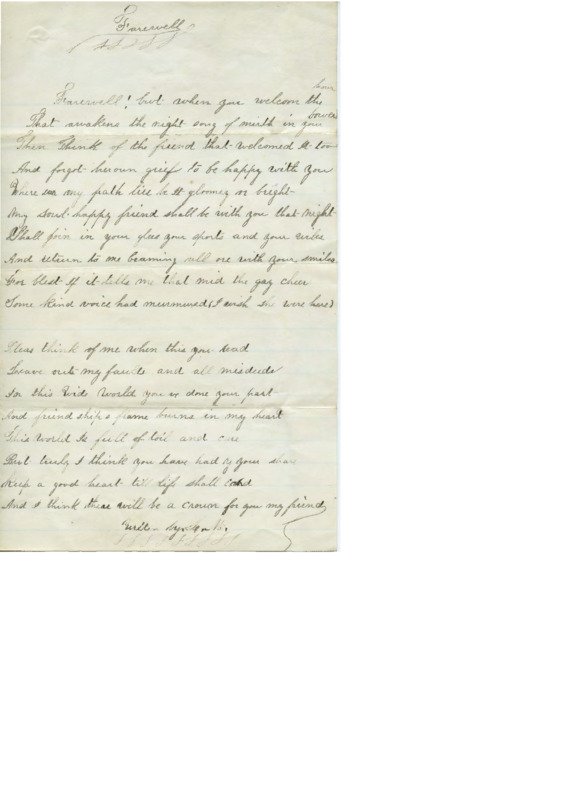 Farewell
Farewell! but when you welcom the hour
That awakens the night song of mirth in your bower
Then Think of the friend that welcomed it too
And forgot her own grief to be happy with you
my path lies be it gloomey or bright
My soul happy friend shall be with you that night
Shall join in your glee your sports and your wiles
And return to me beaming all ore with your smiles
For blest if it tells me that mid the gay cheer
Some kind voice had murmured (I wish she were here)
Pleas think of me when this you read
Leave out my faults and all misdeeds
In this wide world you done your part
And friend ships flame burns in my heart
This world is full of toil and care
But truly I think you have had your share
Keep a good heart til life shall end
And I think there will be a crown for you my friend